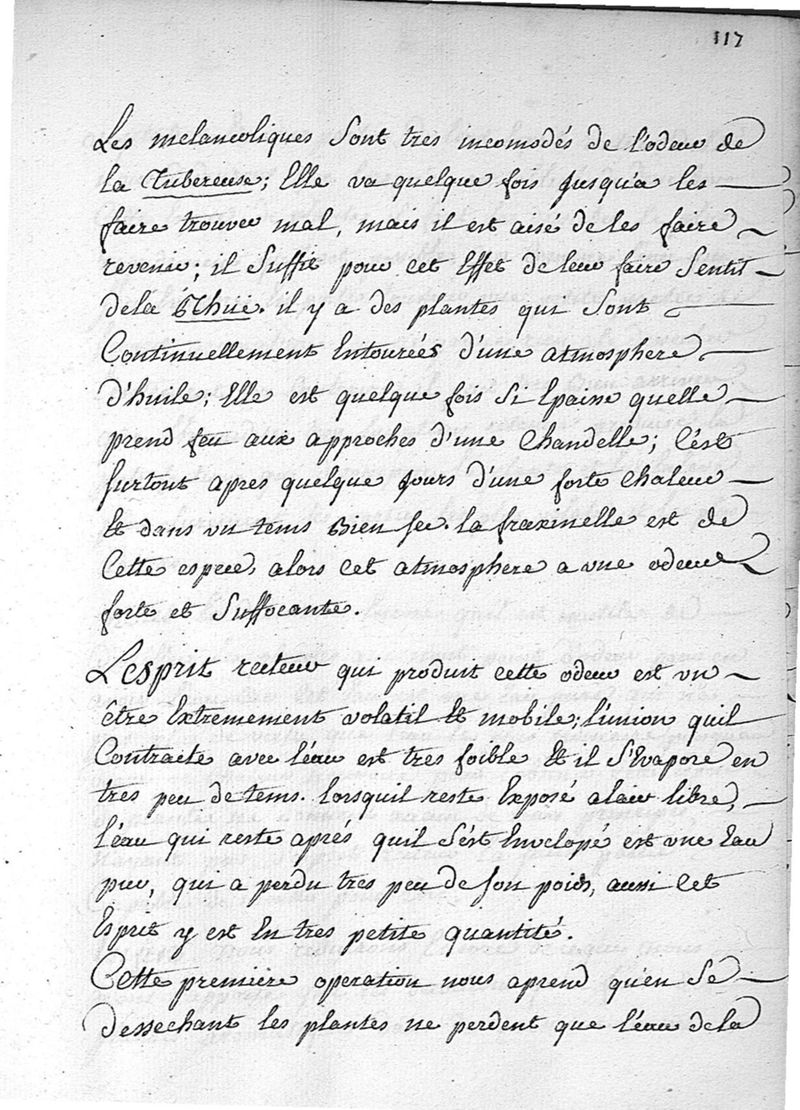 117
Les melancoliques sont tres incomodés de l'odeur de
la Tubereuse; Elle va quelque fois jusqua les
faire trouver mal, mais il est aisé de les faire
revenir; il suffit pour cet Effet de leur faire sentir
dela Rhüe. il y a des plantes qui sont
Continuellement Entourées d'une atmosphere
d'huile; Elle est quelque fois si Epaisse quelle
prend feu aux approches d'une Chandelle; C'est
surtout apres quelque jours d'une forte chaleur
Et dans un tems Bien sec. la fraxinelle est de
Cette espece, alors cet atmosphere a une odeur
forte et suffocante.
L'esprit recteur qui produit cette odeur est un
être Extremement volatil Et mobile; l'union quil
Contracte avec l'eau est tres foible Et il s'Evapore en
tres peu de tems. lorsquil reste Exposé a l'air libre,
l'eau qui reste apres quil s'est Envelopé est une Eau
pure, qui a perdu tres peu de son poids, aussi Cet
Esprit y est En tres petite quantité.
Cette premiere operation nous aprend qu'en se
dessechant les plantes ne perdent que l'eau dela